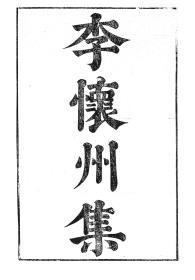 李懷州集